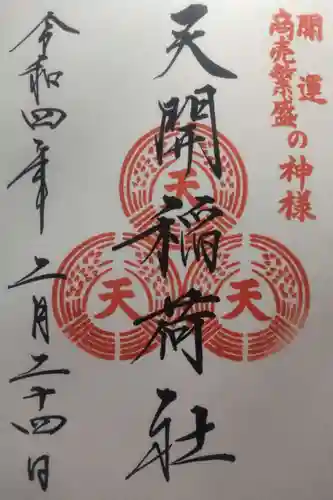 開運
商売繁盛の神様
天開稲荷社
天
天
天
令和四年 二月二十四日